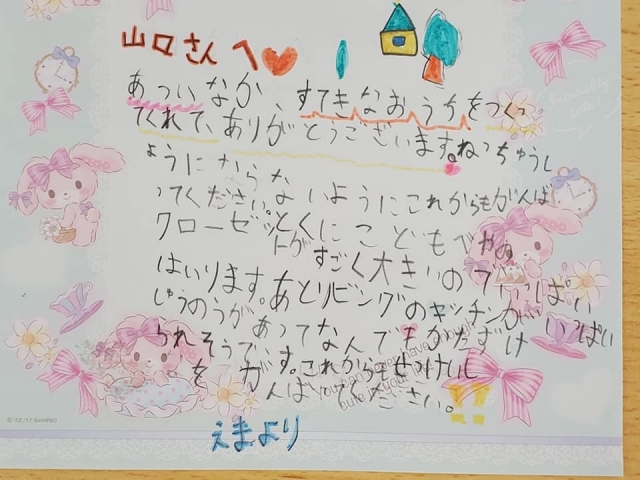 山口さんへ
あついなか、すてきなおうちをつくっ
てくれて、ありがとうございます。ねっちゅうし
ょうにならな
ってください。いようにこれからもがんば
クローゼッとくにこどもべやの
トがすごく大きいのでいっぱい
はいります。あとリビングのキッチンがいっぱい
しゅうのうがあってなんでもかたずけ
られそうです。これからもせっけいし
をがんばってください。
えまより